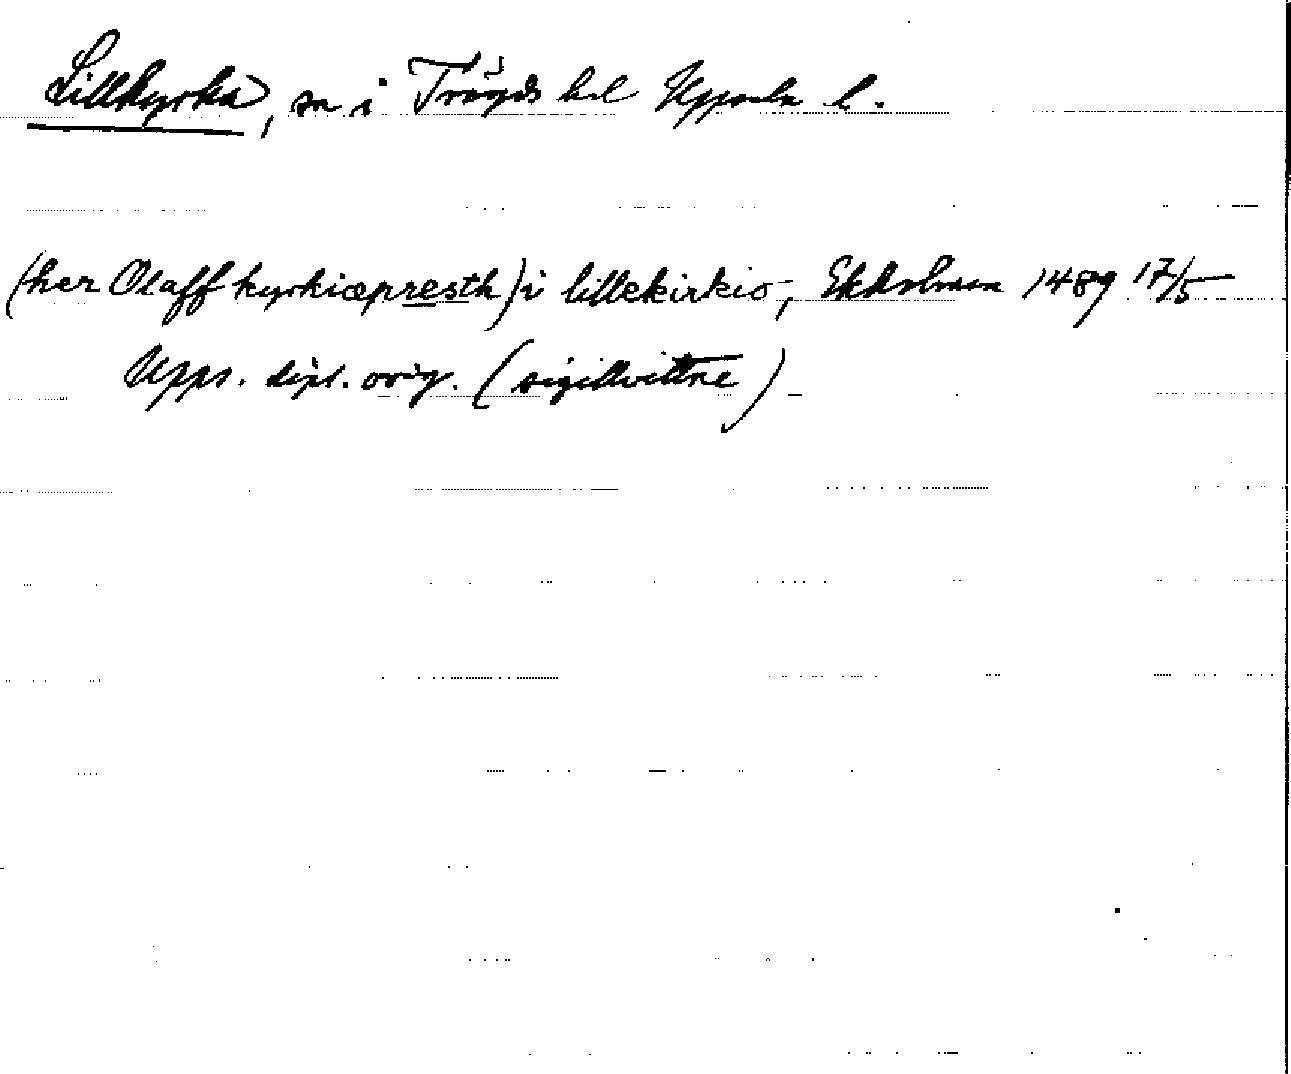 Lillkyrka, sn i Trögds hd Uppsala l.
(her Olaff kyrkiæpresth) i lillekirkio, Ekholmen 1489 17/5
Upps. dipl. orig. (sigillvittne)